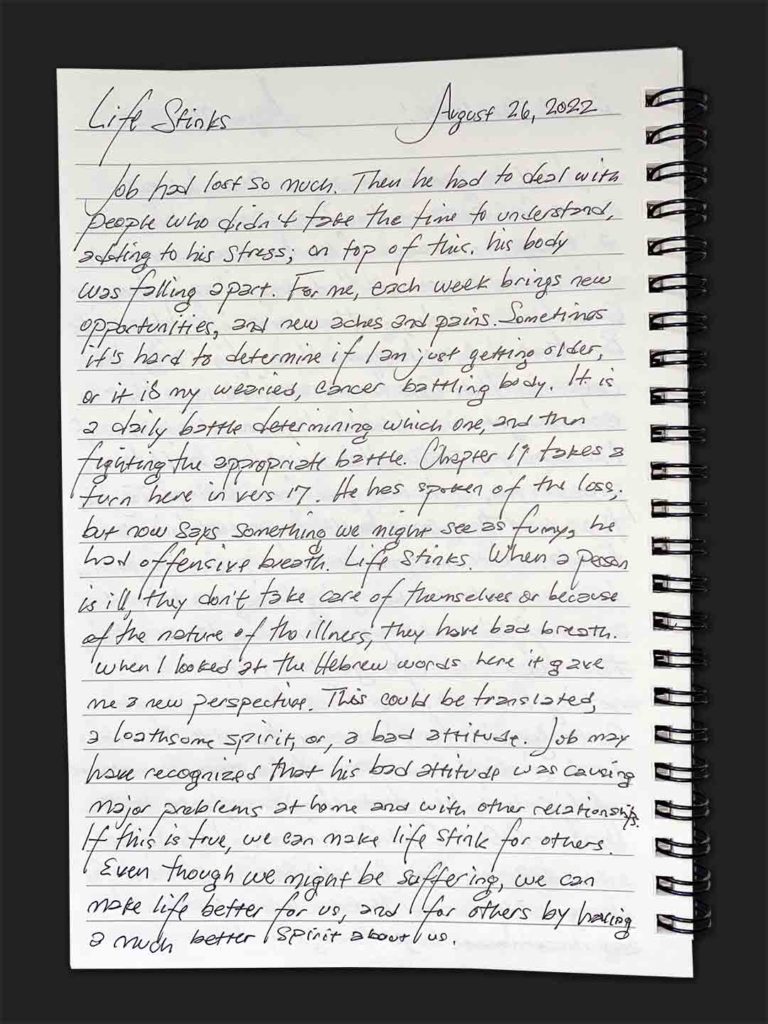 Life Stinks August 26, 2022
Job had lost so much. Then he had to deal with
people who didn't take the time to understand,
adding to his stress; on top of this, his body
was falling apart. For me, each week brings new
opportunities, and new aches and pains. Sometimes
it's hard to determine if I am just getting older,
or it is my wearied, cancer battling body. It is
a daily battle determining which one, and then
fighting the appropriate battle. Chapter 19 takes a
turn here in vers 17. He has spoken of the loss,
but now says something we might see as funny, he
had offensive breath. Life Stinks. When a person
is ill, they don't take care of themselves or because
of the nature of the illness, they have bad breath.
When I looked at the Hebrew words here it gave
me a new perspective. This could be translated,
a loathsome spirit, or, a bad attitude. Job may
have recognized that his bad attitude was causing
major problems at home and with other relationships.
If this is true, we can make life stink for others.
Even though we might be suffering, we can
make life better for us, and for others by having
a much better spirit about us.